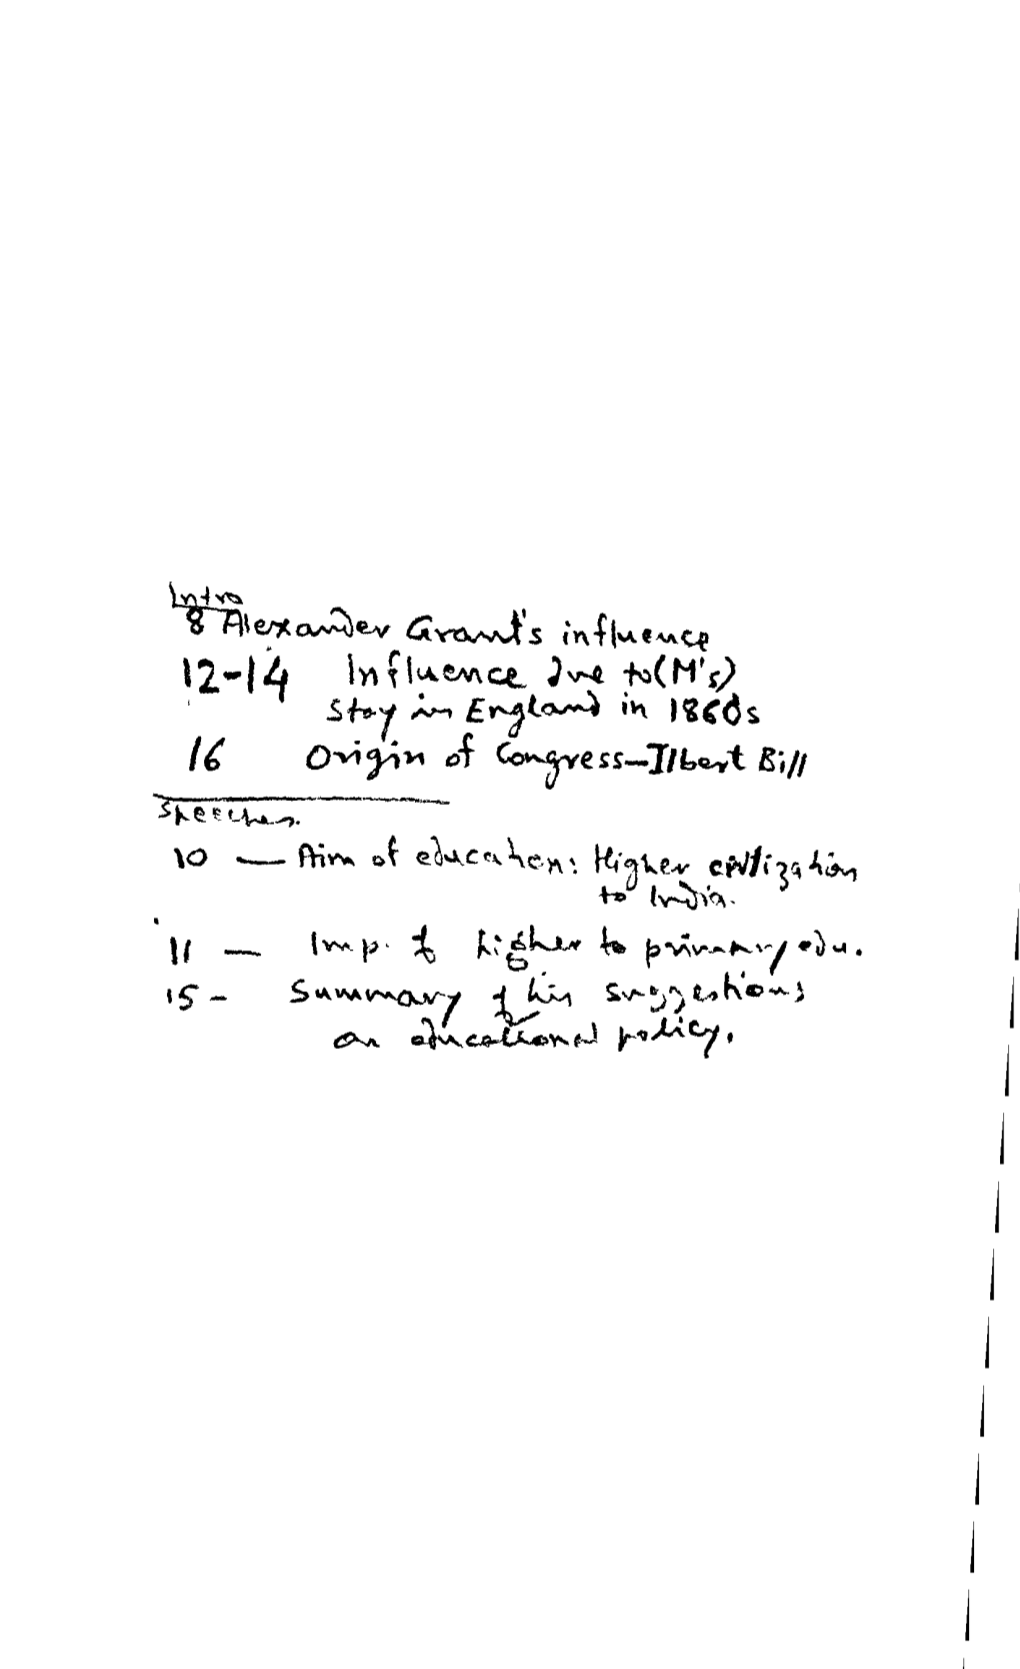 Intro
8 Alexander Grant's influence
12-14 Influence due to (M's)
stay in England in 1860s
16 Origin of Congress—Ilbert Bill
Speeches.
10 — Aim of education: Higher civilization
to India.
11 — Imp. of higher to primary edu.
15 - Summary of his suggestions
on educational policy.